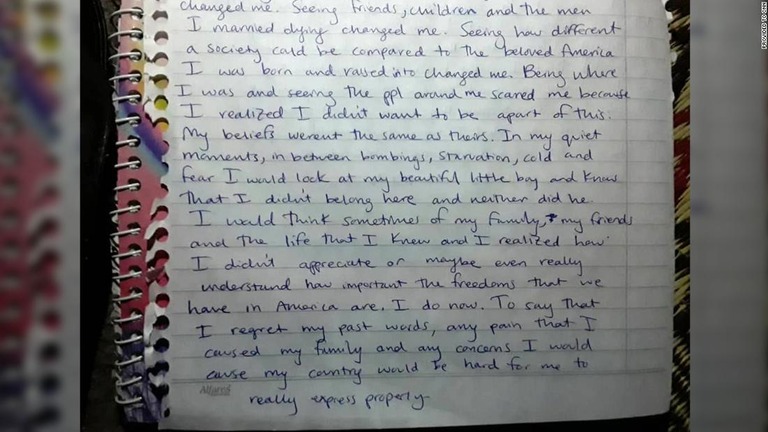 changed me. Seeing friends, children and the men
I married dying changed me. Seeing how different
a society could be compared to the beloved America
I was born and raised into changed me. Being where
I was and seeing the ppl around me scared me because
I realized I didn't want to be apart of this.
My beliefs werent the same as theirs. In my quiet
moments, in between bombings, starvation, cold and
fear I would look at my beautiful little boy and know
that I didn't belong here and neither did he.
I would think sometimes of my family, & my friends
and the life that I knew and I realized how
I didn't appreciate or maybe even really
understand how important the freedoms that we
have in America are. I do now. To say that
I regret my past words, any pain that I
caused my family and any concerns I would
cause my country would be hard for me to
really express properly-
PROVIDED TO CNN